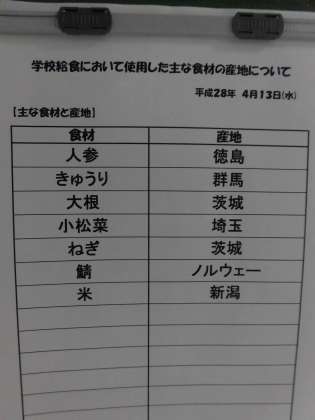 学校給食において使用した主な食材の産地について
平成28年 4月13日(水)
【主な食材と産地】
食材 産地
人参 徳島
きゅうり 群馬
大根 茨城
小松菜 埼玉
ねぎ 茨城
鯖 ノルウェー
米 新潟